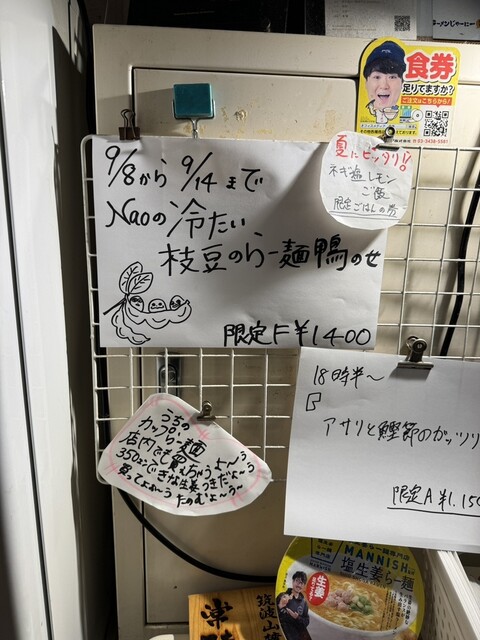 ラーメンじゃーにー
食券
足りてますか?
ご注文はこちらから!
9/8から 9/14 まで
Naoの冷たい
枝豆のらー麺鴨のせ
限定F ¥1400
夏にピッタリ!!
ネギ塩レモン
ご飯
限定ごはんの券
18時半〜
アサリと鰹節のガッツリ
限定A ¥1.150
うちの
カップらー麺
店内でも買えちゃうよ〜う
350円でできな生姜つきだよ〜う
買ってよ〜う
たのむよ〜う〜
MANNISH
塩生姜らー麺
生姜
筑波山麓